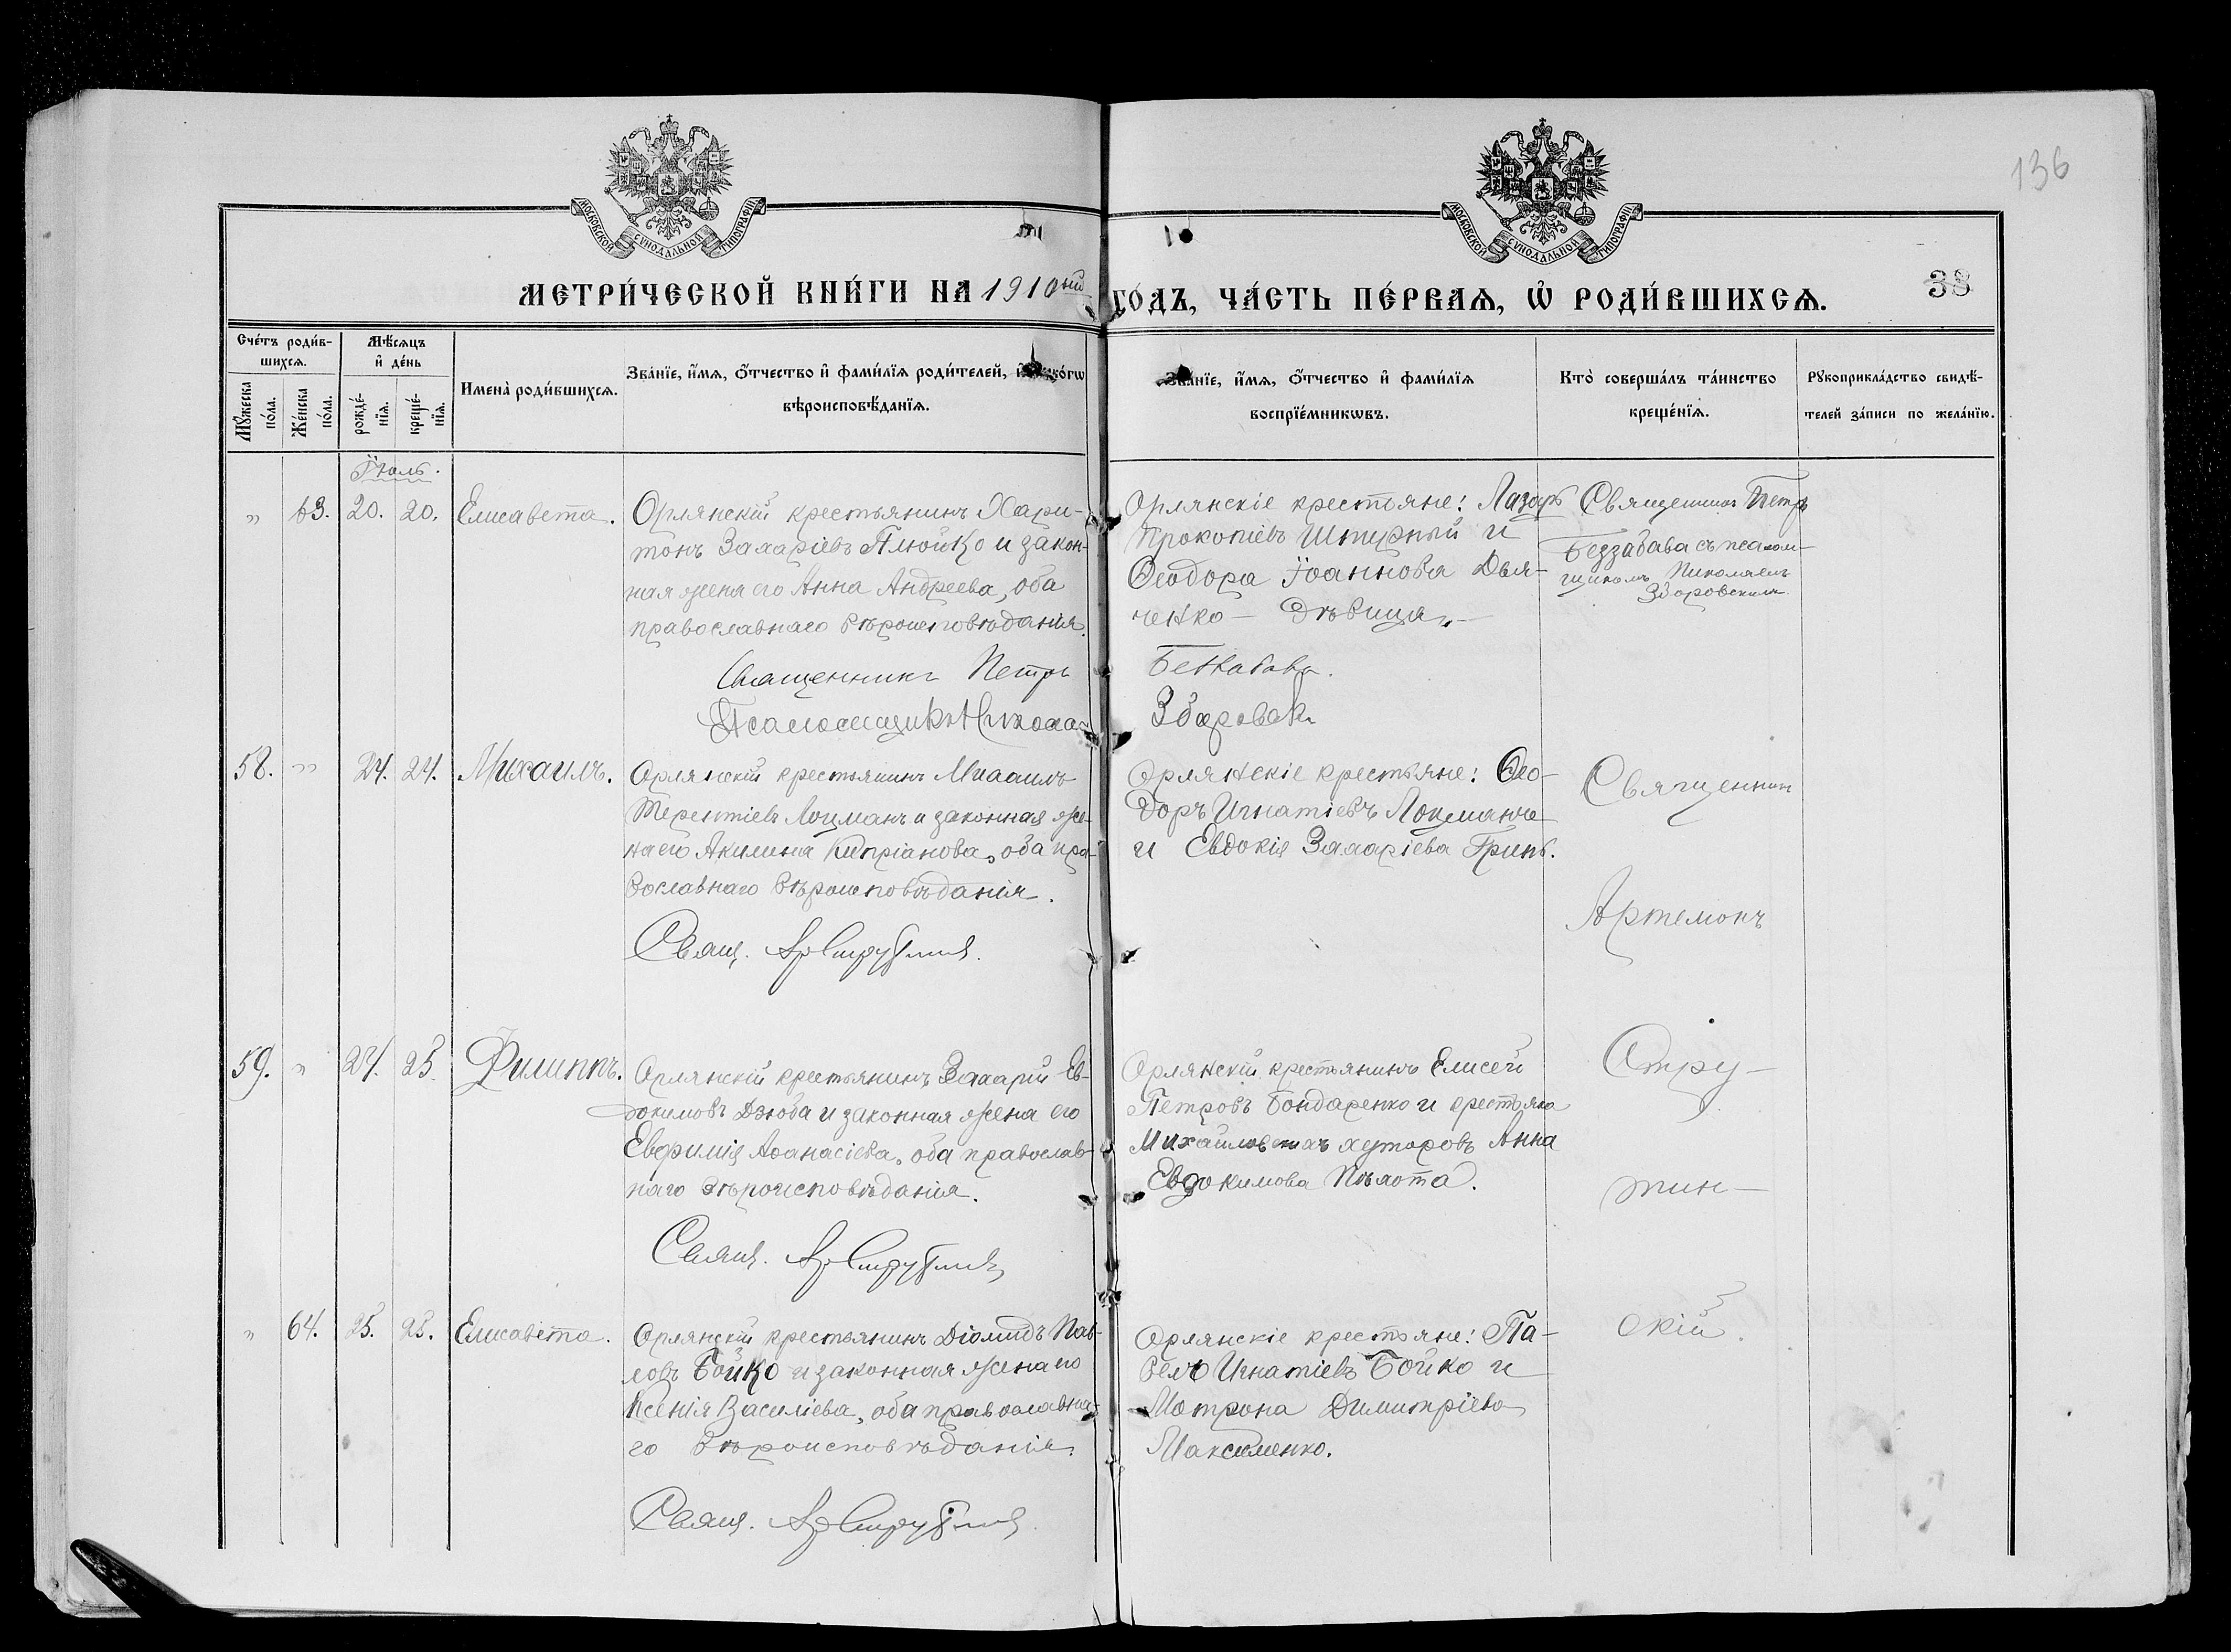 136
МОСКОВСКОЙ СУНОДАЛЬНОЙ ТИПОГРАФІИ
МОСКОВСКОЙ СУНОДАЛЬНОЙ ТИПОГРАФІИ
МЕТРИ́ЧЕСКОЙ КНИ́ГИ НА 1910ый ГО́ДЪ, ЧА́СТЬ ПЕ́РВАѦ, Ѡ҆ РОДИ́ВШИХСѦ. 38
Сче́тъ роди́в-
шихсѧ.
Мꙋ́жеска по́ла.
Же́нска по́ла.
Мѣ́сѧцъ
и҆ де́нь
рожде́-
нїѧ.
креще́-
нїѧ.
Имена̀ роди́вшихсѧ.
Зва́нїе, и҆́мѧ, ѻ҆́тчество и҆ фами́лїѧ роди́телей, и҆ како́гѡ
вѣроисповѣ́данїѧ.
Зва́нїе, и҆́мѧ, ѻ҆́тчество и҆ фами́лїѧ
воспрїе́мникѡвъ.
Кто̀ соверша́лъ та́инство
креще́нїѧ.
Рꙋкоприкла́дство свидѣ́-
телей за́писи по жела́нїю.
Іюль.
" 63. 20. 20. Елисавета.
Орлянскій крестьянинъ Хари-
тонъ Захаріевъ Плюйко и закон-
ная жена его Анна Андреева, оба
православнаго вѣроисповѣданія.
Священникъ Петръ Беззабава.
Псаломщикъ Николай Збаровск
Орлянскіе крестьяне: Лазарь
Прокопіевъ Шпирный и
Ѳеодора Іоаннова Дья-
ченко — дѣвица.
Священникъ Петръ
Беззабава съ псалом-
щикомъ Николаемъ
Збаровскимъ
58. " 24. 24. Михаилъ.
Орлянскій крестьянинъ Михаилъ
Терентіевъ Лоцманъ и законная же-
на его Акилина Кипріанова, оба пра-
вославнаго вѣроисповѣданія.
Свящ. Ар Струтинс
Орлянскіе крестьяне: Ѳео-
доръ Игнатіевъ
и Евдокія Захаріева Гринь.
Священник
Артемонъ
59. " 24. 25. Филиппъ.
Орлянскій крестьянинъ Захарій Ев-
докимовъ Дзюба и законная жена его
Евфимія Аѳанасіева, оба православ-
наго вѣроисповѣданія.
Свящ. Ар Струтинс
Орлянскій крестьянинъ Елисей
Петровъ Бондаренко и крестьянка
Михайловскихъ хуторовъ Анна
Евдокимова
Стру-
тин-
скій.
" 64. 25. 25. Елисавета.
Орлянскій крестьянинъ Діомидъ Пав-
ловъ Бойко и законная жена его
Ксенія Василіева, оба православна-
го вѣроисповѣданія.
Свящ. Ар Струтинс
Орлянскіе крестьяне: Па-
велъ Игнатіевъ Бойко и
Мотрона Димитріева
Максименко.